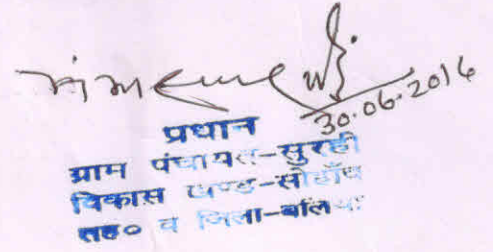 30.06.2016
प्रधान
ग्राम पंचायत-सुरही
विकास खण्ड-सोहाँव
तह० व जिला-बलिया